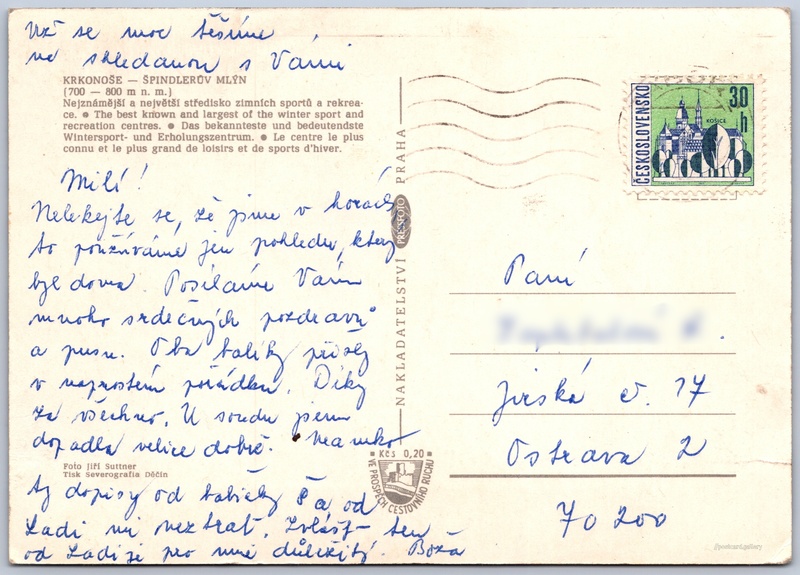 Už se moc těšíme
na shledanou s Vámi
KRKONOŠE — ŠPINDLERŮV MLÝN
(700 — 800 m n. m.)
Nejznámější a největší středisko zimních sportů a rekrea-
ce. ● The best known and largest of the winter sport and
recreation centres. ● Das bekannteste und bedeutendste
Wintersport- und Erholungszentrum. ● Le centre le plus
connu et le plus grand de loisirs et de sports d'hiver.
Milí!
Nelekejte se, že jsme v horách
to používáme jen pohledu, který
byl doma. Posíláme Vám
mnoho srdečných pozdravů
a pusu. Oba balíky přišly
v naprostém pořádku. Díky
za všechno. U soudu jsem
dopadla velice dobře.
Foto Jiří Suttner
Tisk Severografia Děčín
ty dopisy od babičky a od
Ladi mi neztrať. Zvlášť ten
od Ladi je pro mne důležitý. Boža
NAKLADATELSTVÍ PRESSFOTO PRAHA
Kčs 0,20
VE PROSPĚCH CESTOVNÍHO RUCHU
ČESKOSLOVENSKO
30 h
KOŠICE
Paní
Jirská č. 17
Ostrava 2
70 200
postcard.gallery